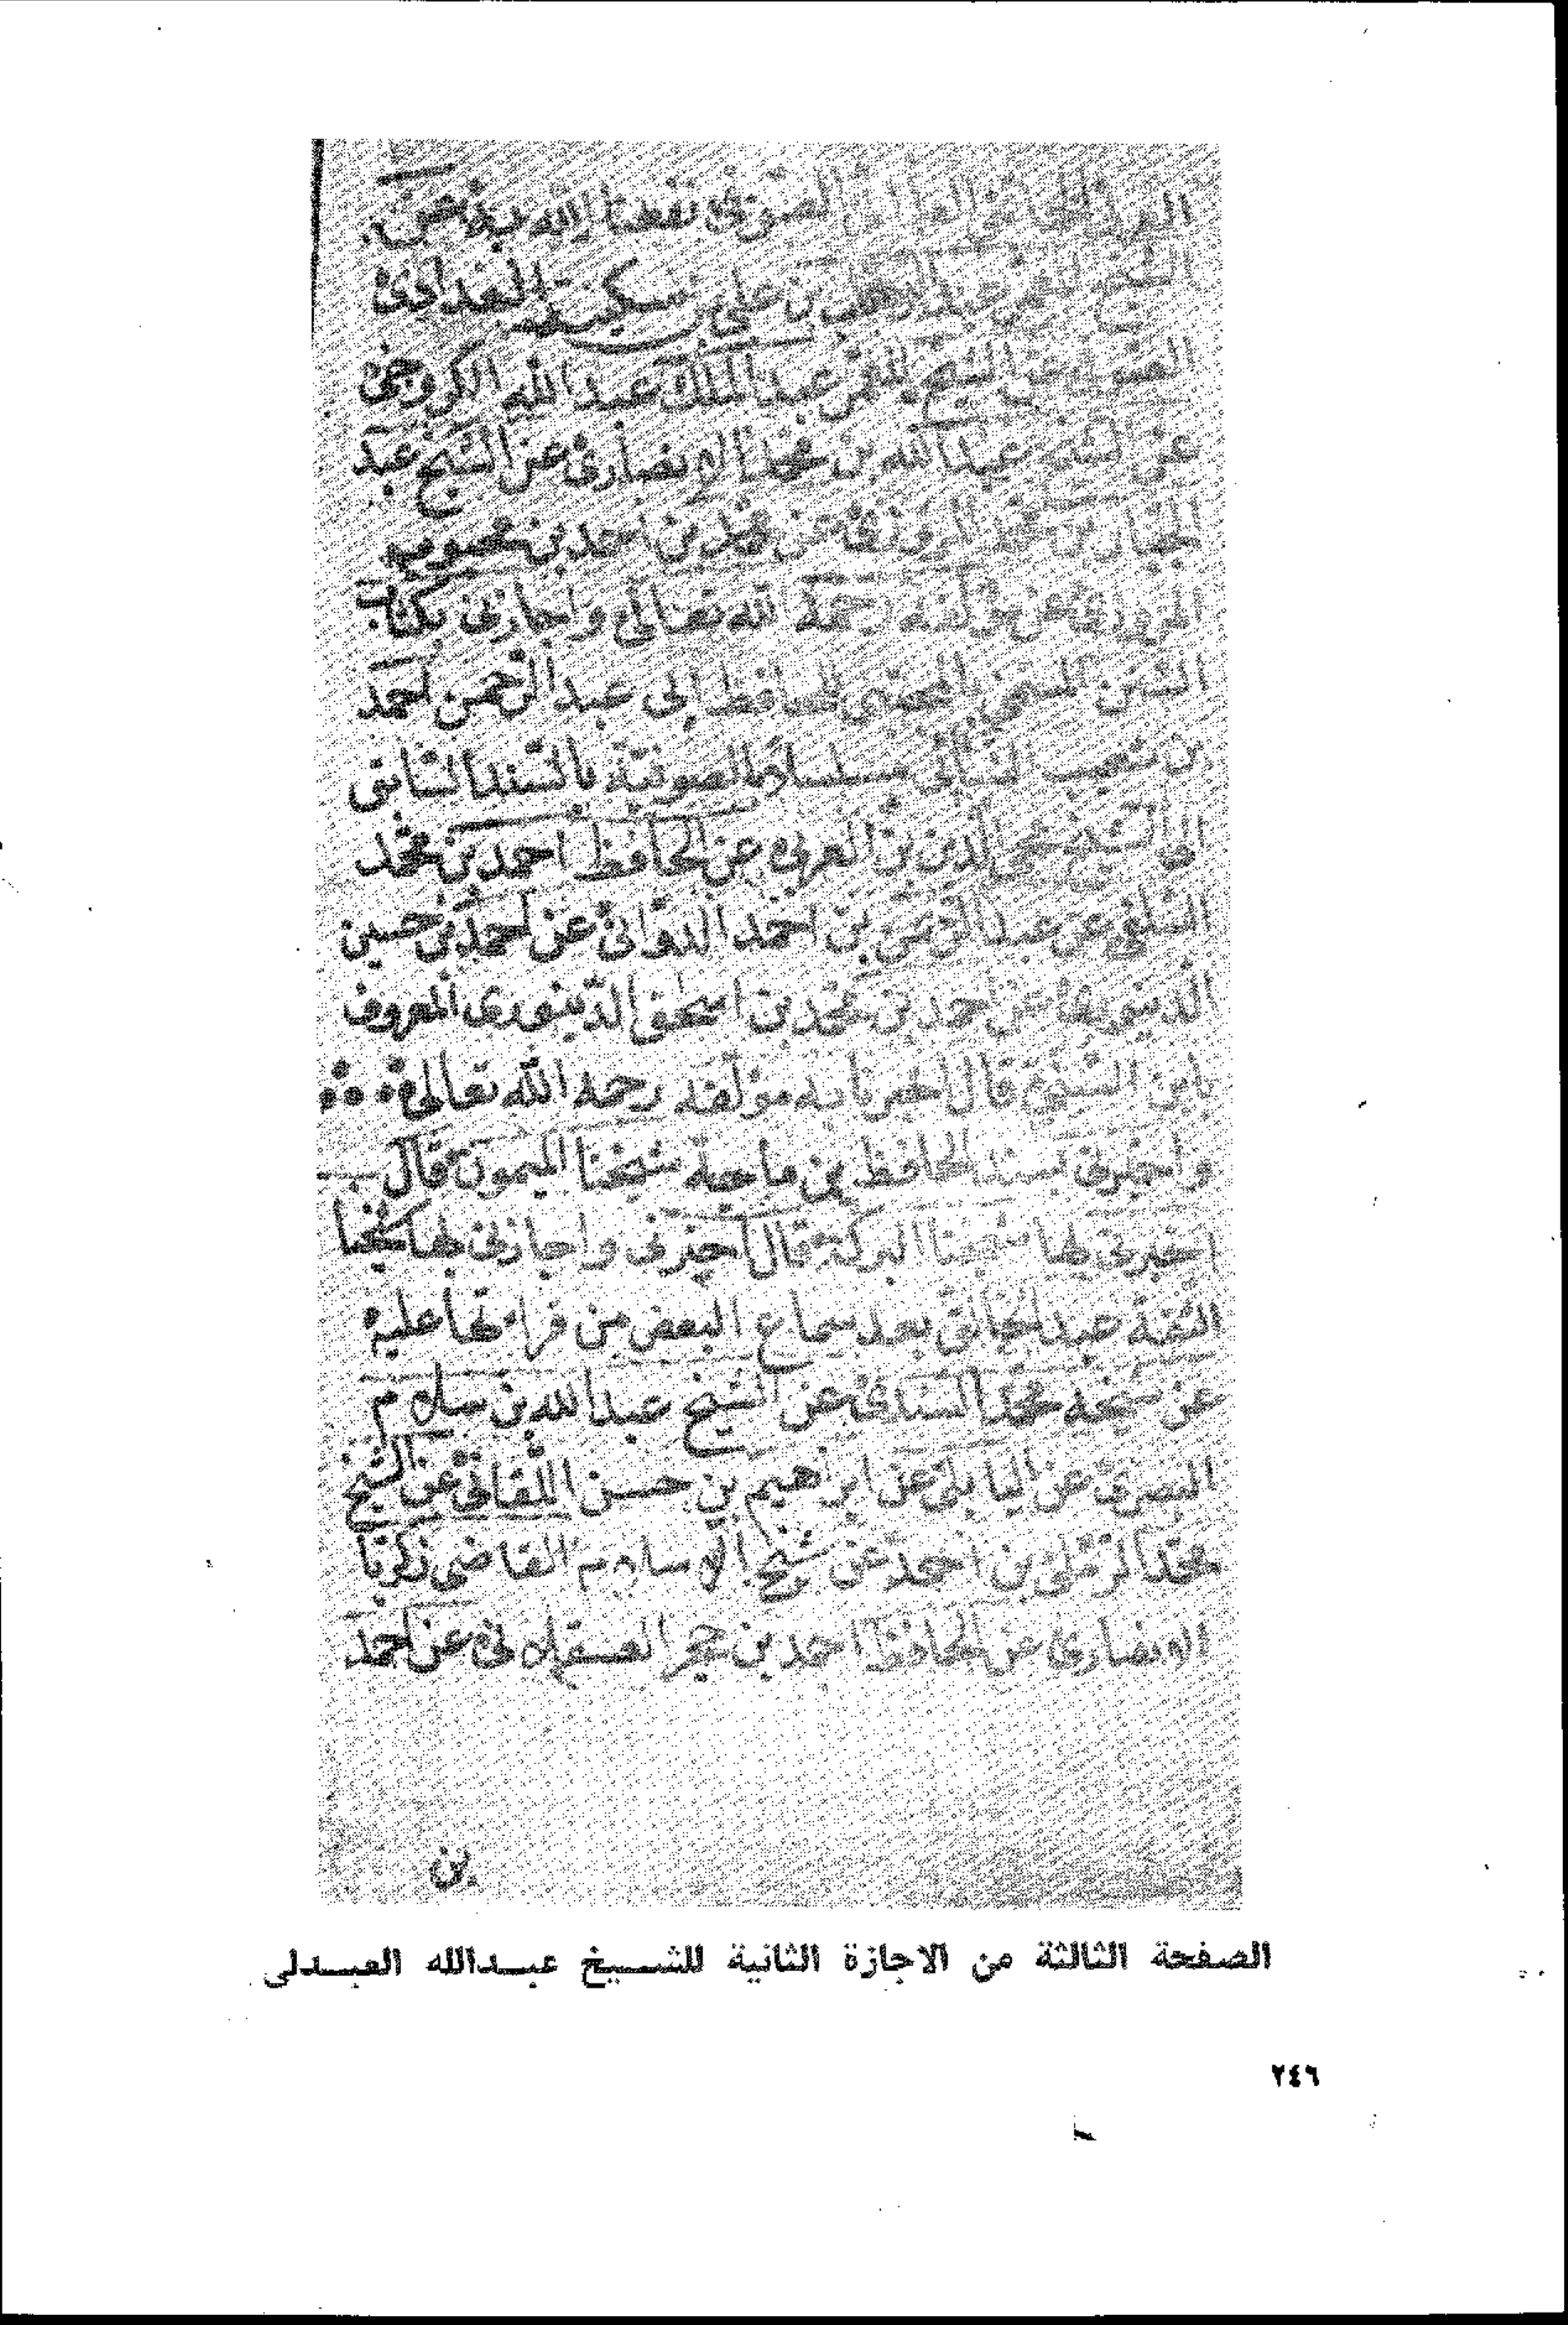 العربي الحاتمي الصوفي نفعنا الله به عن
الشيخ المعمر عبد الوهاب بن علي بن سكينة البغدادي
الصوفي عن الشيخ المعمر عبد الملك عبد الله الكروخي
عن الشيخ عبد الله بن محمد الانصاري عن الشيخ عبد
الجبار بن محمد المروزي عن محمد بن احمد بن محبوب
المروزي عن مؤلفه رحمة الله تعالى واجازني بكتاب
السنن المسمى بالمجتبى للحافظ ابى عبد الرحمن احمد
بن شعيب النسائي مسلسلا بالصوفية بالسند السابق
الى الشيخ محي الدين بن العربي عن الحافظ احمد بن محمد
السلفي عن عبد الرحمن بن احمد الدواني عن احمد بن حسين
الدينوري عن احمد بن محمد بن اسحق الدينوري المعروف
بابن السني قال اخبرنا به مؤلفه رحمه الله تعالى
واخبرني بسند الحافظ بن ماجة شيخنا الميمون قال
اخبرني بها شيخنا البركة قال اخبرني واجازني بها شيخنا
الثقة عبد الخالق بعد سماع البعض من قراءتها عليه
عن شيخه محمد السنافي عن الشيخ عبد الله بن سلام
البصري عن البابلي عن ابراهيم بن حسن اللقاني عن الشيخ
محمد الرملي بن احمد عن شيخ الاسلام القاضي زكريا
الانصاري عن الحافظ احمد بن حجر العسقلاني عن احمد
بن
الصفحة الثالثة من الاجازة الثانية للشيخ عبدالله العبدلى
٢٤٦